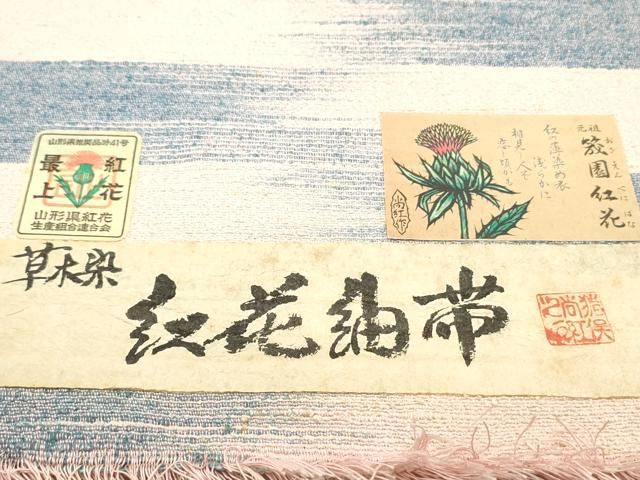 山形県推奨品 第41号
最上
紅花
山形県紅花
生産組合連合会
元祖
笈園紅花
おいえんべにばな
紅の薄染め衣
浅らかに
相見し人に
恋ふ頃かも
尚紅作
草木染
紅花紬帯